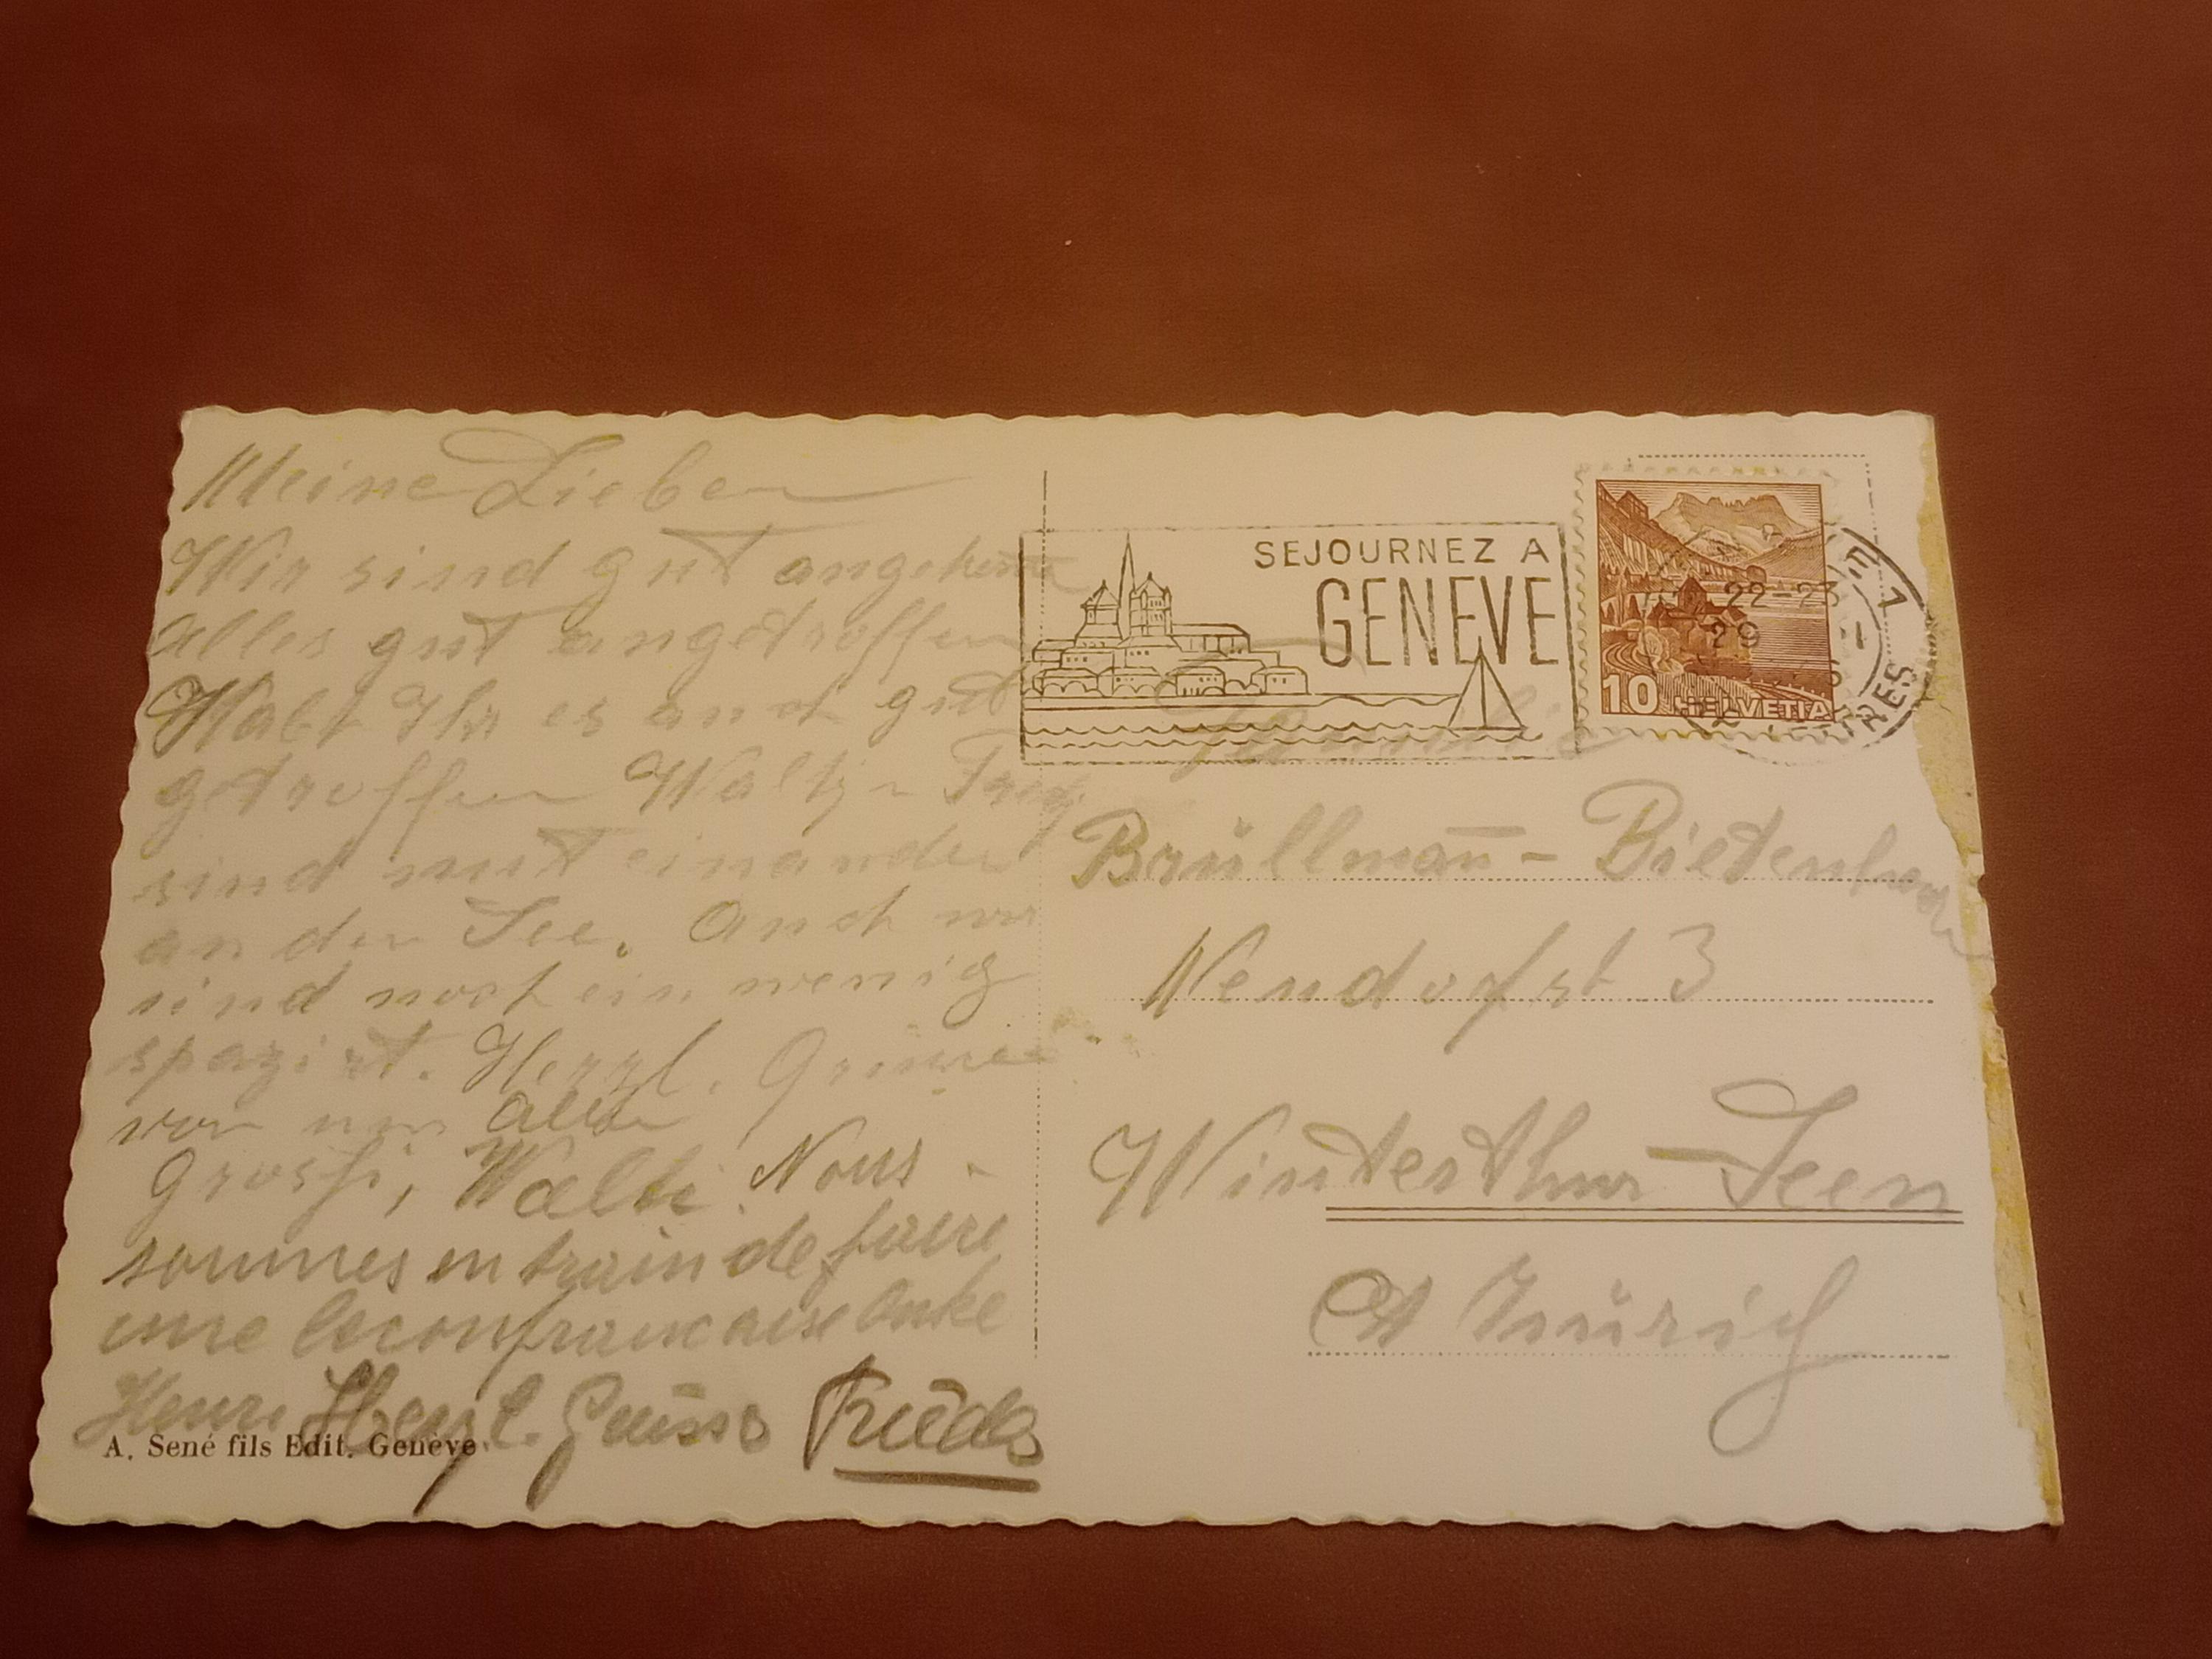 Meine Lieben
Wir sind gut angekom
alles gut angetroffen
Habt Ihr es auch gut
getroffen Walti
sind mit einander
an den See. Auch wir
sind noch ein wenig
spazirt. Herzl. Grüsse
von uns allen
Grossi, Walti. Nous
sommes en train de faire
une leconfrancaise Onke
Henri Herzl. Grüsse Frieda
A. Sené fils Edit. Genève.
SEJOURNEZ A
GENEVE
22-23
29
10 HELVETIA
Familie
Brüllmann - Bietenh
3
Winterthur - Seen
Ct Zürich